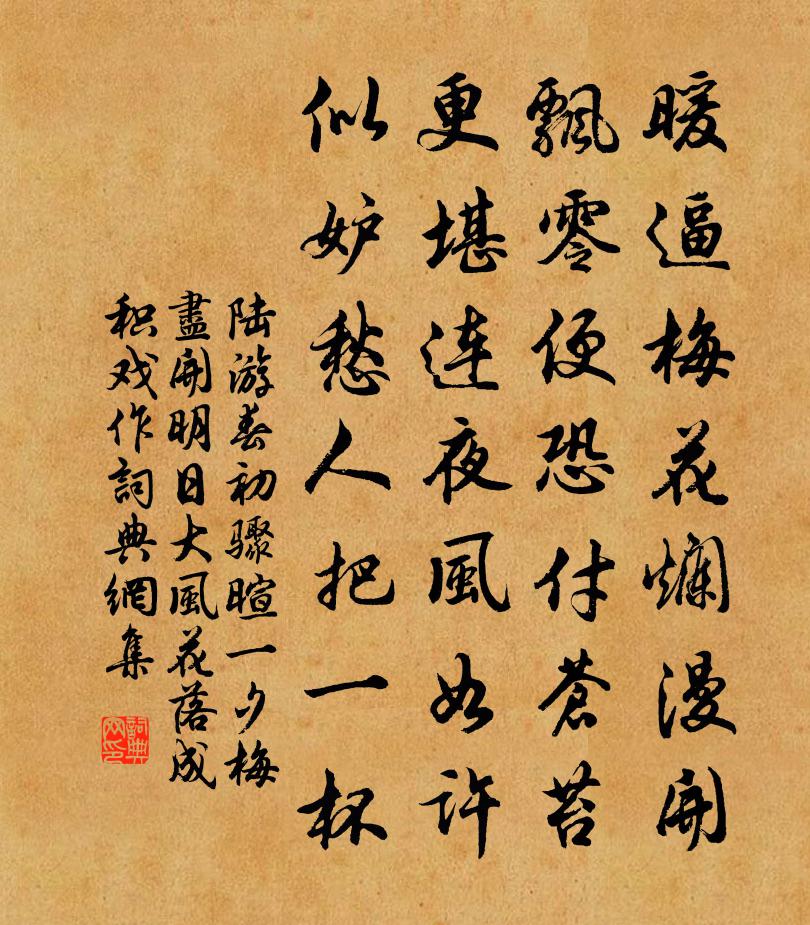 暖逼梅花爛漫開
飄零便恐付蒼苔
更堪連夜風如許
似妒愁人把一杯
陆游春初骤暄一夕梅
盡開明日大風花落成
积戏作詞典網集